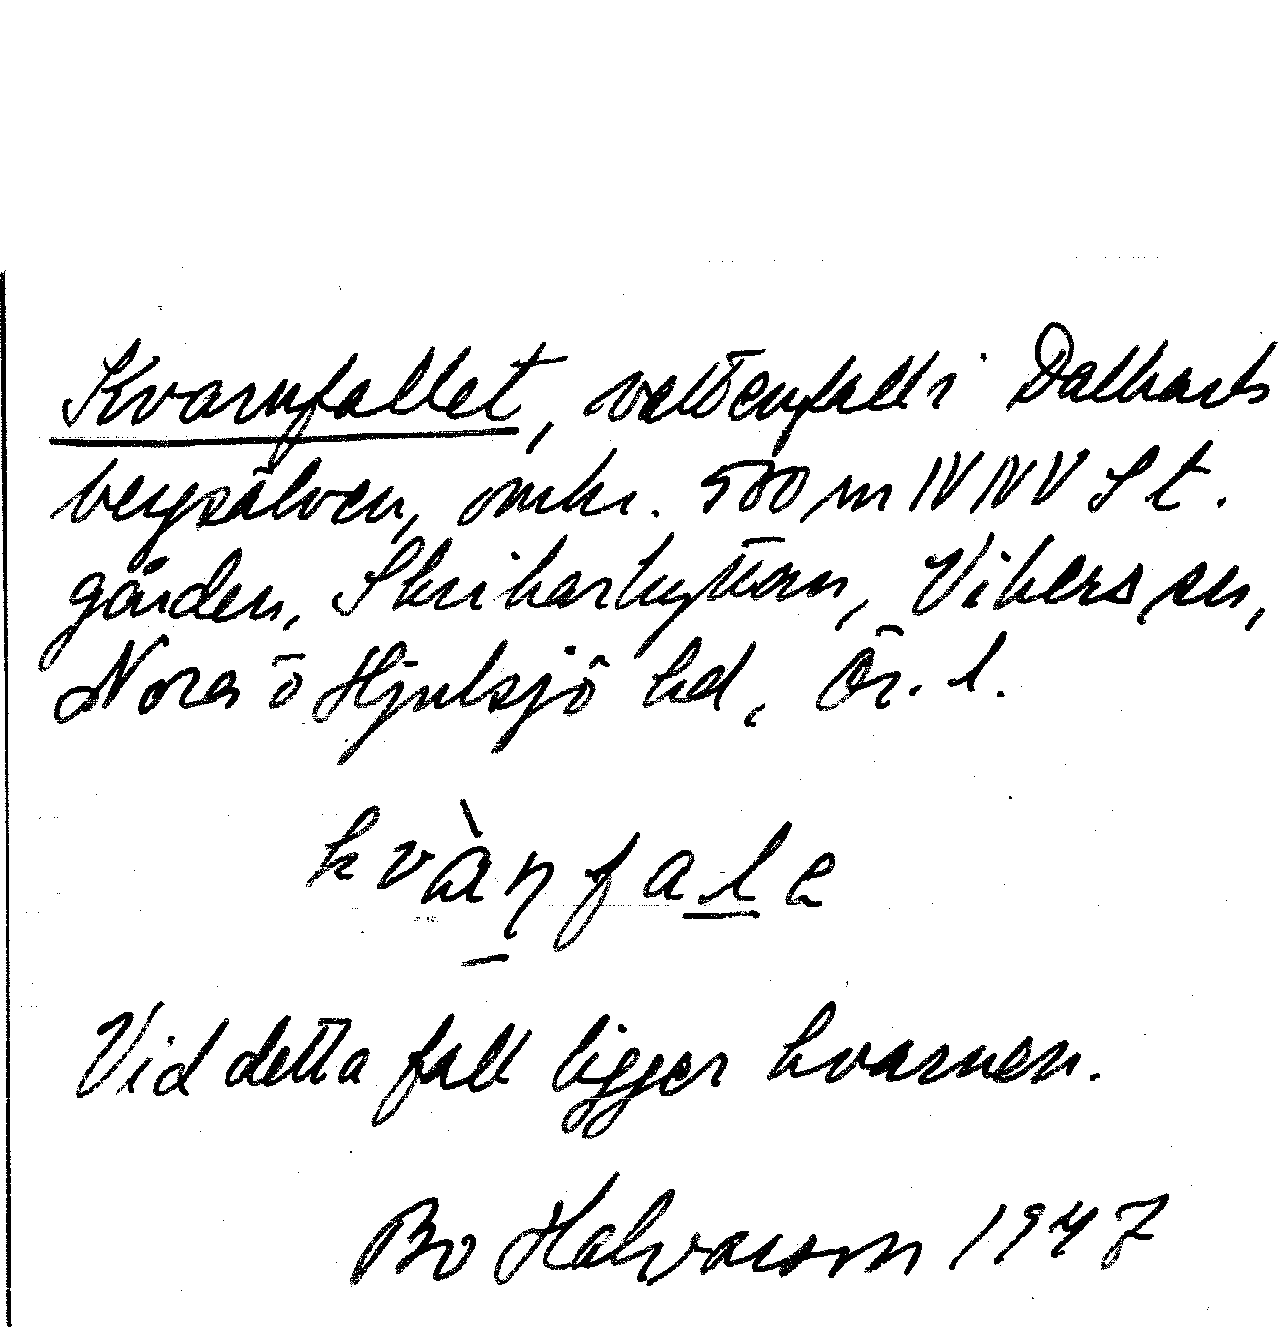 Kvarnfallet, vattenfall i Dalkarls
bergsälven, omkr. 500 m NNV St.
gården, Skrikarhyttan, Vikers sn,
Nora o Hjulsjö hd, Ör. l.
kvànfale
Vid detta fall ligger kvarnen.
Bo Halvarson 1947